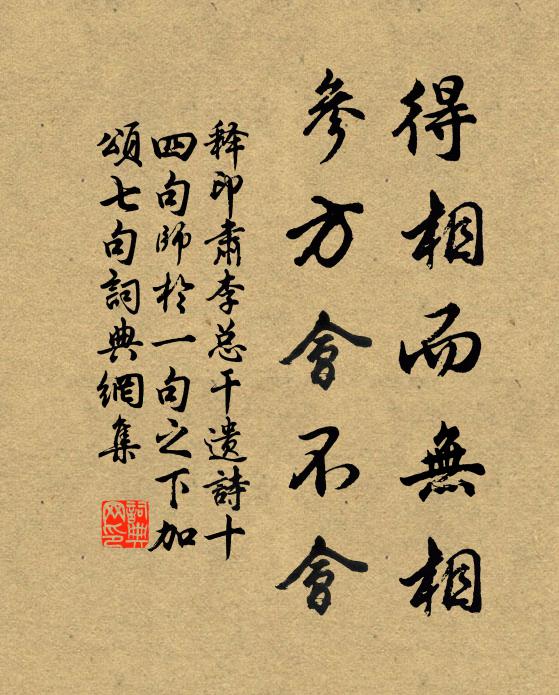 得相而無相
參方會不會
释印肅李总干遗詩十
四句師於一句之下加
頌七句詞典網集
詞典
网印